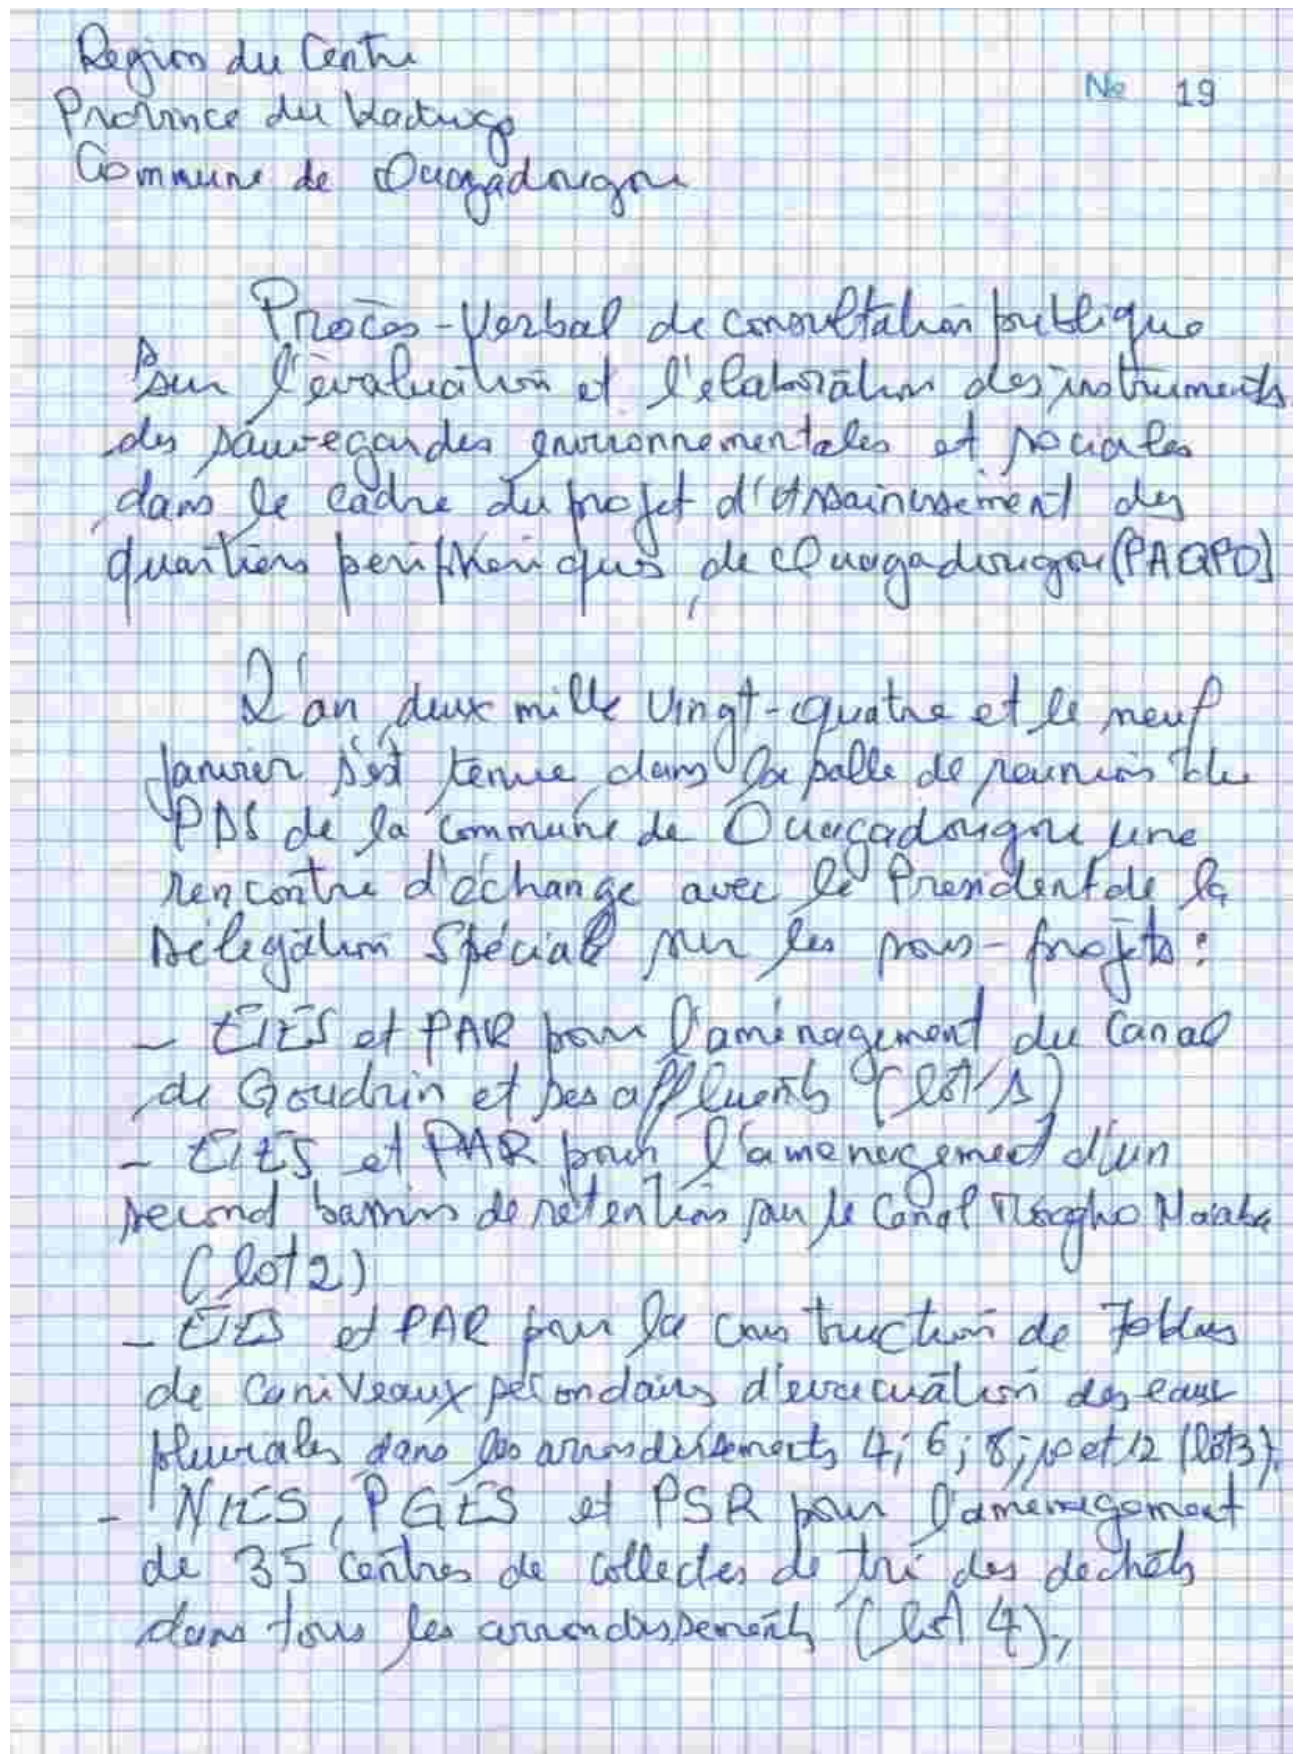 Region du Centre
No 19
Province du Kadiogo
Commune de Ouagadougou
Procès-Verbal de consultation publique
sur l'évaluation et l'elaboration des instruments
des sauvegardes environnementales et sociales
dans le cadre du projet d'Assainissement des
quartiers peripheriques de Ouagadougou (PAQPO)
L'an deux mille vingt-quatre et le neuf
janvier s'est tenue dans la salle de reunion du
PDS de la commune de Ouagadougou une
rencontre d'échange avec le President de la
Délégation Spéciale sur les sous-projets :
- EIES et PAR pour l'aménagement du Canal
de Goudrin et ses affluents (lot 1)
- EIES et PAR pour l'amenagement d'un
second bassin de rétention sur le Canal Mogho Naaba
(lot 2)
- EIES et PAR pour la construction de
de Caniveaux secondaires d'evacuation des eaux
pluviales dans les arrondissements 4; 6; 8; 10 et 12 (lot 3).
- NIES, PGES et PSR pour l'amenagement
de 35 Centres de collectes de tri des dechets
dans tous les arrondissements (lot 4),